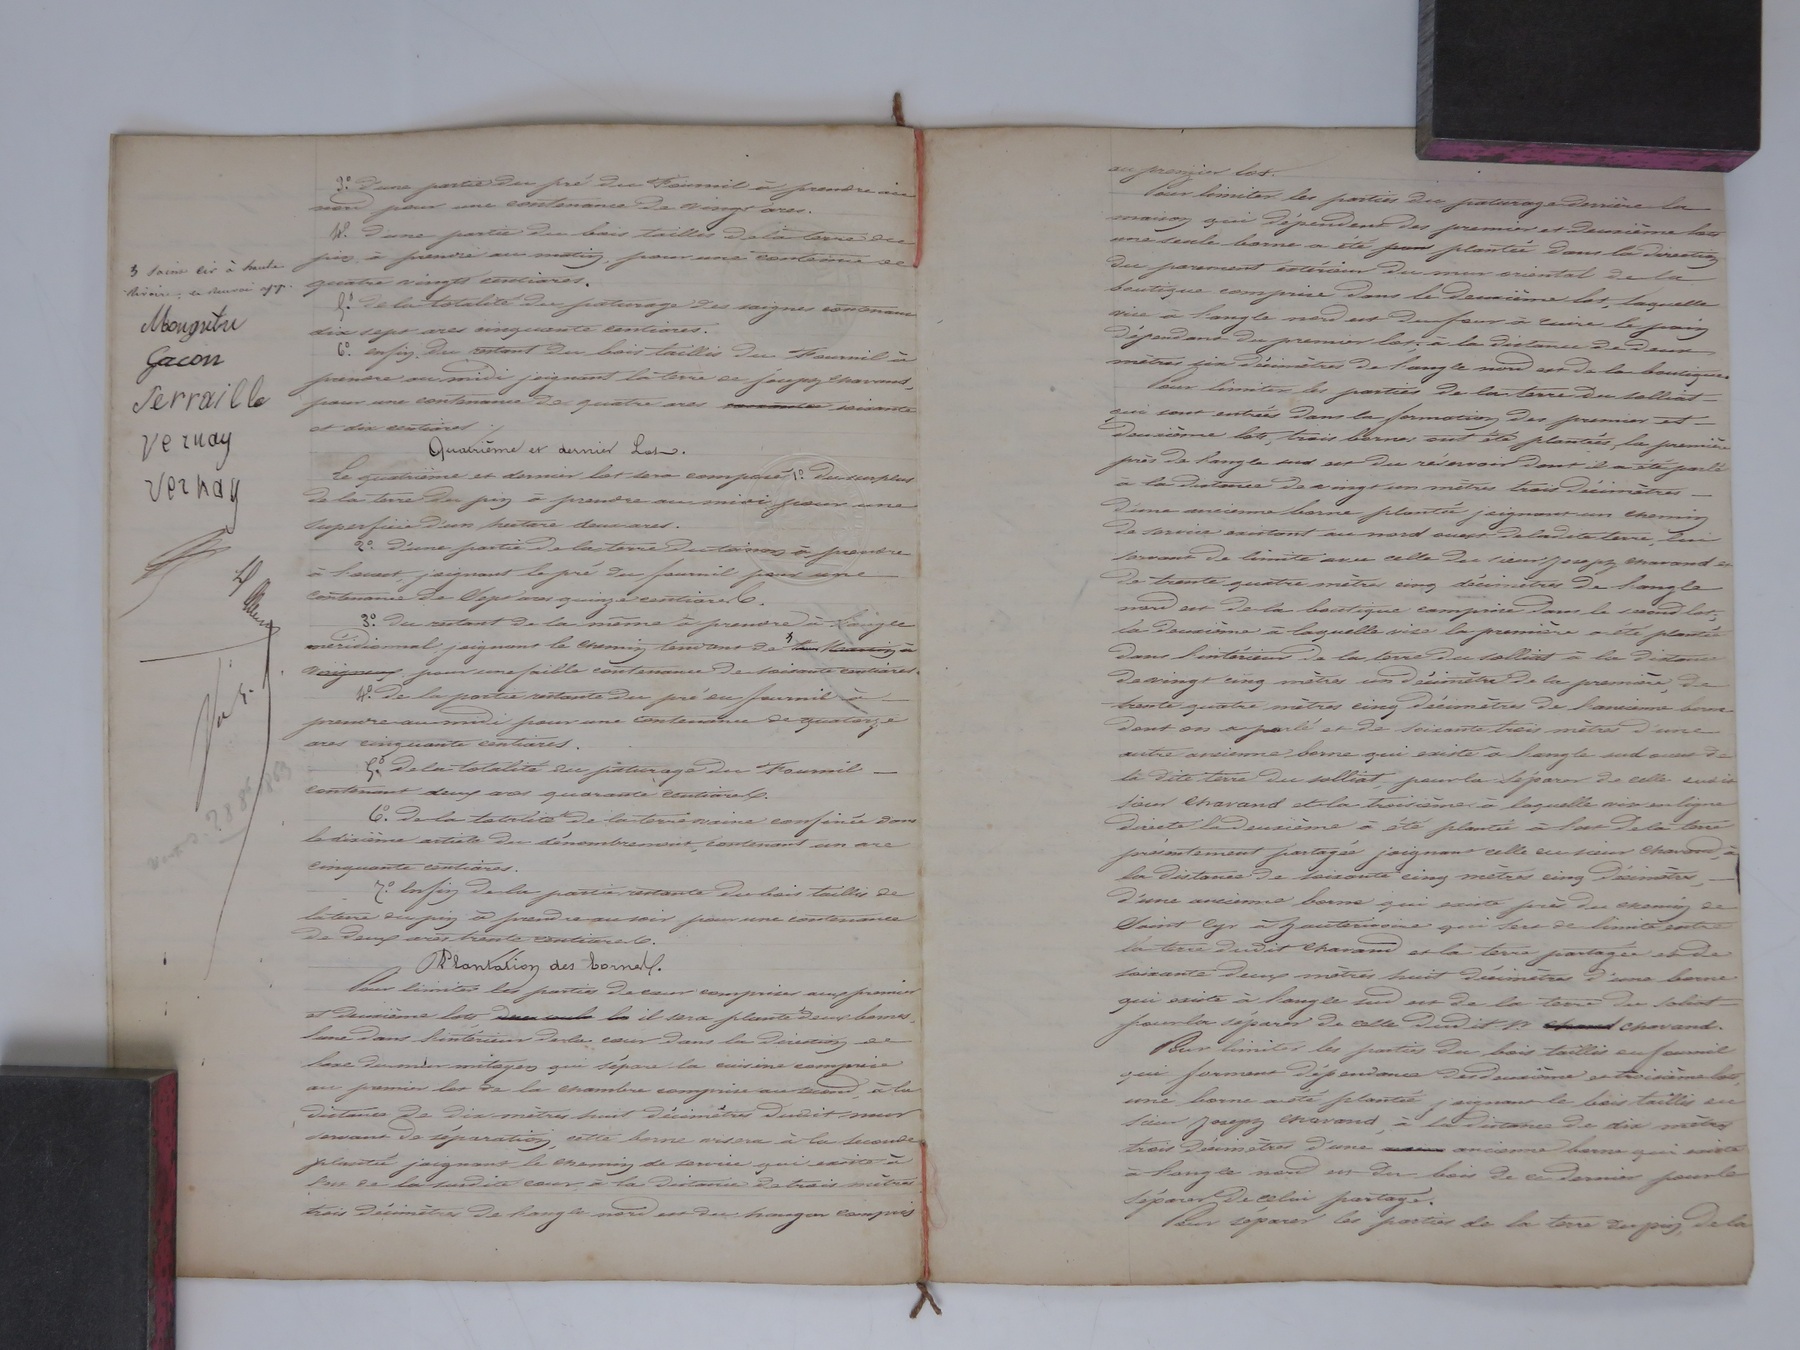 3 Saint Cir à haute
Rivoire, ce renvoi app.
Mougutu
Gacon
Serraille
Vernay
Vernay
3º. d'une partie du pré du Fournil à prendre au
nord pour une contenance de vingt ares.
4º. d'une partie du bois taillis de la terre du
pin, à prendre au matin, pour une contenance de
quatre vingts centiares.
5º. de la totalité du paturage des saignes contenant
dix sept ares cinquante centiares.
6º. enfin du restant du bois taillis du Fournil à
prendre au midi joignant la terre de Joseph Chavand,
pour une contenance de quatre ares soixante
et dix centiares.
Quatrième et dernier Lot.
Le quatrième et dernier lot sera composé 1º. du surplus
de la terre du pin à prendre au midi pour une
superficie d'un hectare deux ares.
2º. d'une partie de la terre du à prendre
à l'ouest, joignant le pré du fournil pour une
contenance de Sept ares quinze centiares.
3º. du restant de la même à prendre à l'angle
méridional joignant le chemin tendant de 3
pour une faible contenance de soixante centiares.
4º. de la partie restante du pré du fournil à
prendre au midi pour une contenance de quatorze
ares cinquante centiares.
5º. de la totalité du pâturage du Fournil
contenant deux ares quarante centiares.
6º. de la totalité de la terre vaine confinée dans
le dixième article du dénombrement, contenant un are
cinquante centiares.
7º. enfin de la partie restante du bois taillis de
la terre du pin à prendre au soir pour une contenance
de deux ares trente centiares.
Plantation des bornes.
Pour limiter les parties de cour comprises aux premier
et deuxième lots il sera planté deux bornes,
l'une dans l'intérieur de la cour dans la direction de
l'axe du mur mitoyen qui sépare la cuisine comprise
au premier lot de la chambre comprise au second, à la
distance de dix mètres huit décimètres dudit mur
servant de séparation, cette borne visera à la seconde
plantée joignant le chemin de service qui existe à
l'est de la susdite cour à la distance de trois mètres
trois décimètres de l'angle nord est du hangar compris
au premier lot.
Pour limiter les parties du paturage derrière la
maison qui dépendent des premier et deuxième lots
une seule borne a été plantée dans la direction
du parement extérieur du mur oriental de la
boutique comprise dans le deuxième lot, laquelle
vise à l'angle nord est du four à cuire le pain
dépendant du premier lot, à la distance de deux
mètres six décimètres de l'angle nord est de la boutique.
Pour limiter les parties de la terre du solliat
qui sont entrées dans la formation des premier et
deuxième lots, trois bornes ont été plantées, la première
près de l'angle sud est du réservoir dont il a été parlé
à la distance de vingt un mètres trois décimètres
d'une ancienne borne plantée joignant un chemin
de service existant au nord ouest de ladite terre, lui
servant de limite avec celle du sieur Joseph Chavand et
de trente quatre mètres cinq décimètres de l'angle
nord est de la boutique comprise dans le second lot;
la deuxième à laquelle vise la première a été plantée
dans l'intérieur de la terre du solliat à la distance
de vingt cinq mètres un décimètre de la première, de
trente quatre mètres cinq décimètres de l'ancienne borne
dont on a parlé et de soixante trois mètres d'une
autre ancienne borne qui existe à l'angle sud ouest de
la dite terre du solliat, pour la séparer de celle dudit
sieur Chavand et la troisième à laquelle vise en ligne
directe la deuxième a été plantée à l'est de la terre
présentement partagée joignant celle du sieur Chavand, à
la distance de soixante cinq mètres cinq décimètres,
d'une ancienne borne qui existe près du chemin de
Saint Cyr à hauterivoire qui sert de limite entre
la terre dudit Chavand et la terre partagée et de
soixante deux mètres huit décimètres d'une borne
qui existe à l'angle sud est de la terre du soliat
pour la séparer de celle dudit Chavand.
Pour limiter les parties du bois taillis du fournil
qui forment dépendance des deuxième et troisième lots,
une borne a été plantée joignant le bois taillis du
sieur Joseph Chavand, à la distance de dix mètres
trois décimètres d'une ancienne borne qui existe
à l'angle nord est du bois de ce dernier pour le
séparer de celui partagé.
Pour séparer les parties de la terre du pin, de la